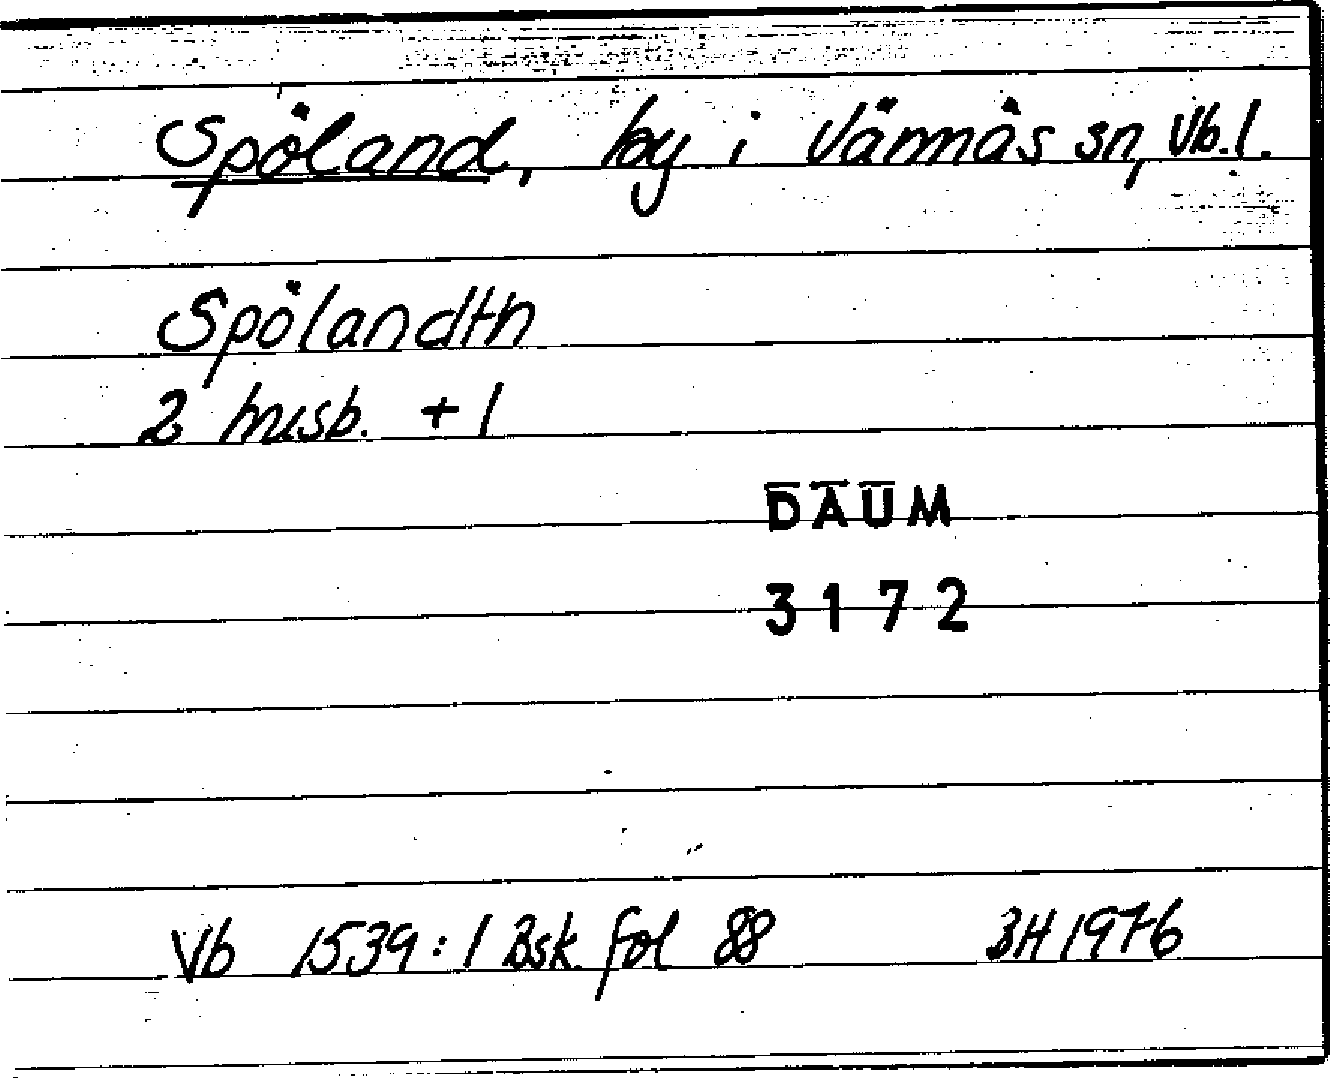 Spöland, by i Vännäs sn, Vb.l.
Spölandth
2 husb. + 1
DAUM
3172
Vb 1539:1 Bsk fol 88 BH 1976